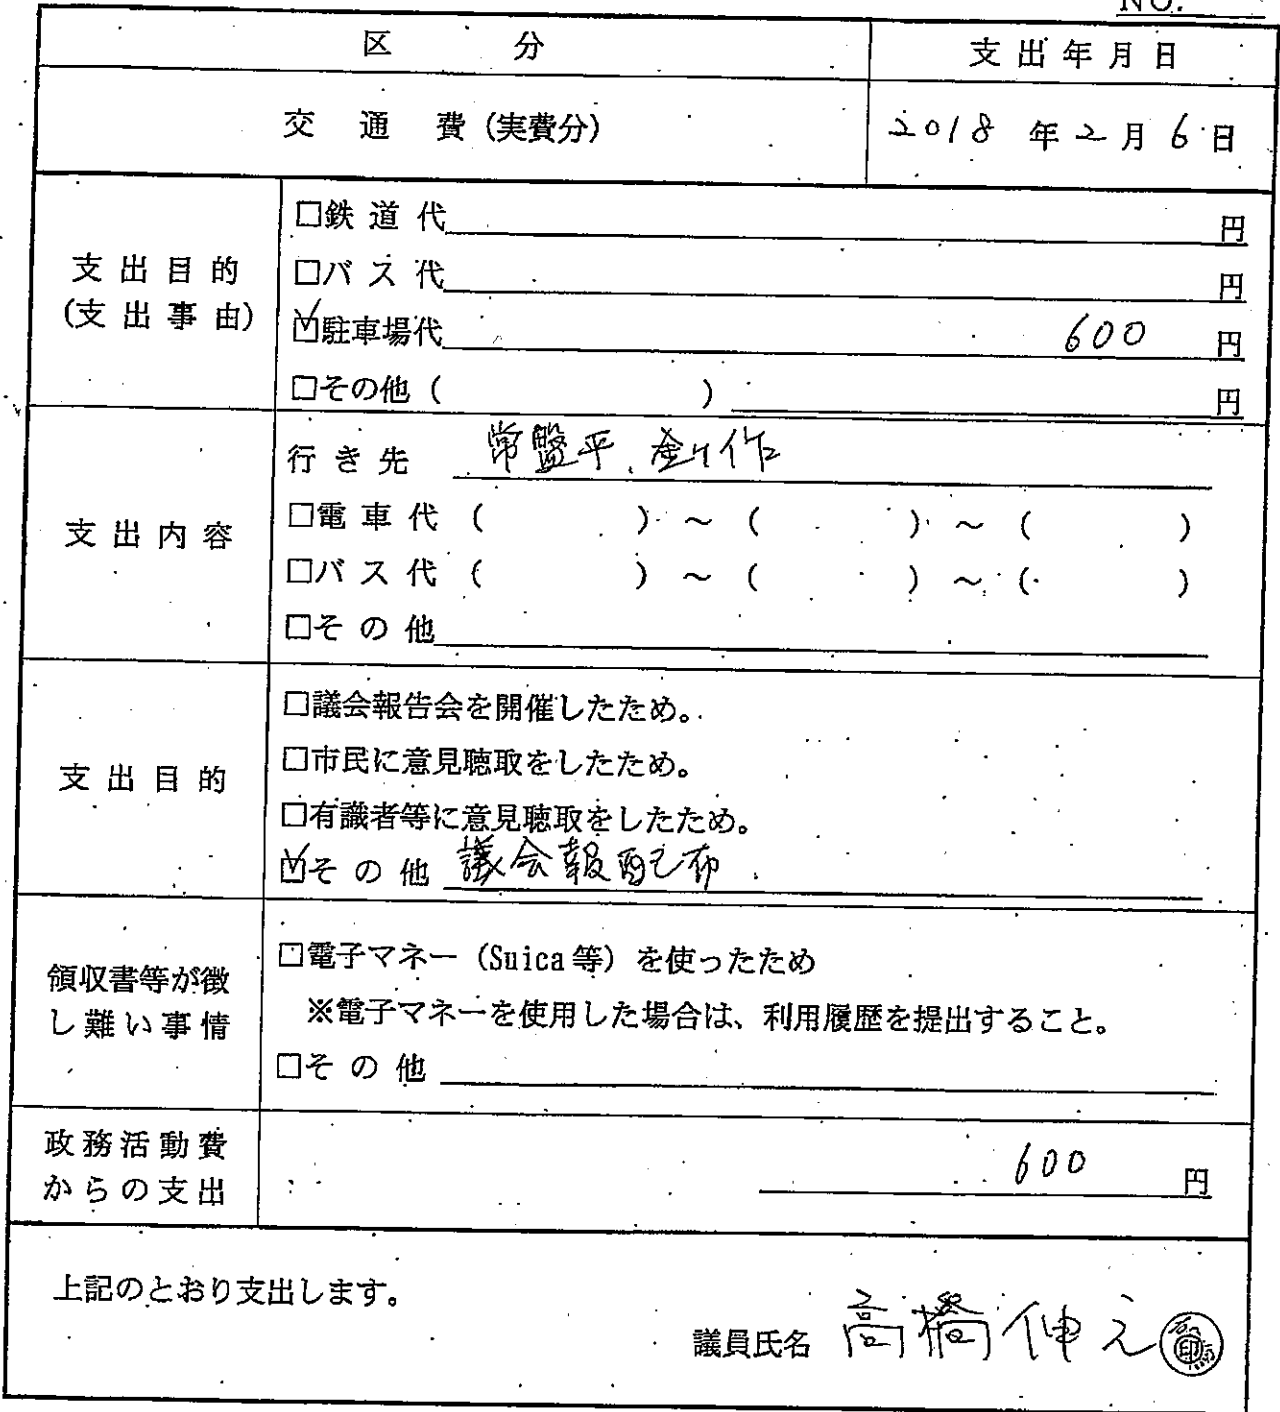 NO.
区 分 支出年月日
交 通 費(実費分) 2018 年 2 月 6 日
支出目的
(支出事由)
□鉄道代 円
□バス代 円
☑駐車場代 600 円
□その他( ) 円
支出内容
行き先 常盤平、金ケ作
□電車代( )~( )~( )
□バス代( )~( )~( )
□その他
支出目的
□議会報告会を開催したため。
□市民に意見聴取をしたため。
□有識者等に意見聴取をしたため。
☑その他 議会報配布
領収書等が徴
し難い事情
□電子マネー(Suica等)を使ったため
※電子マネーを使用した場合は、利用履歴を提出すること。
□その他
政務活動費
からの支出
600 円
上記のとおり支出します。
議員氏名 高橋伸之 印